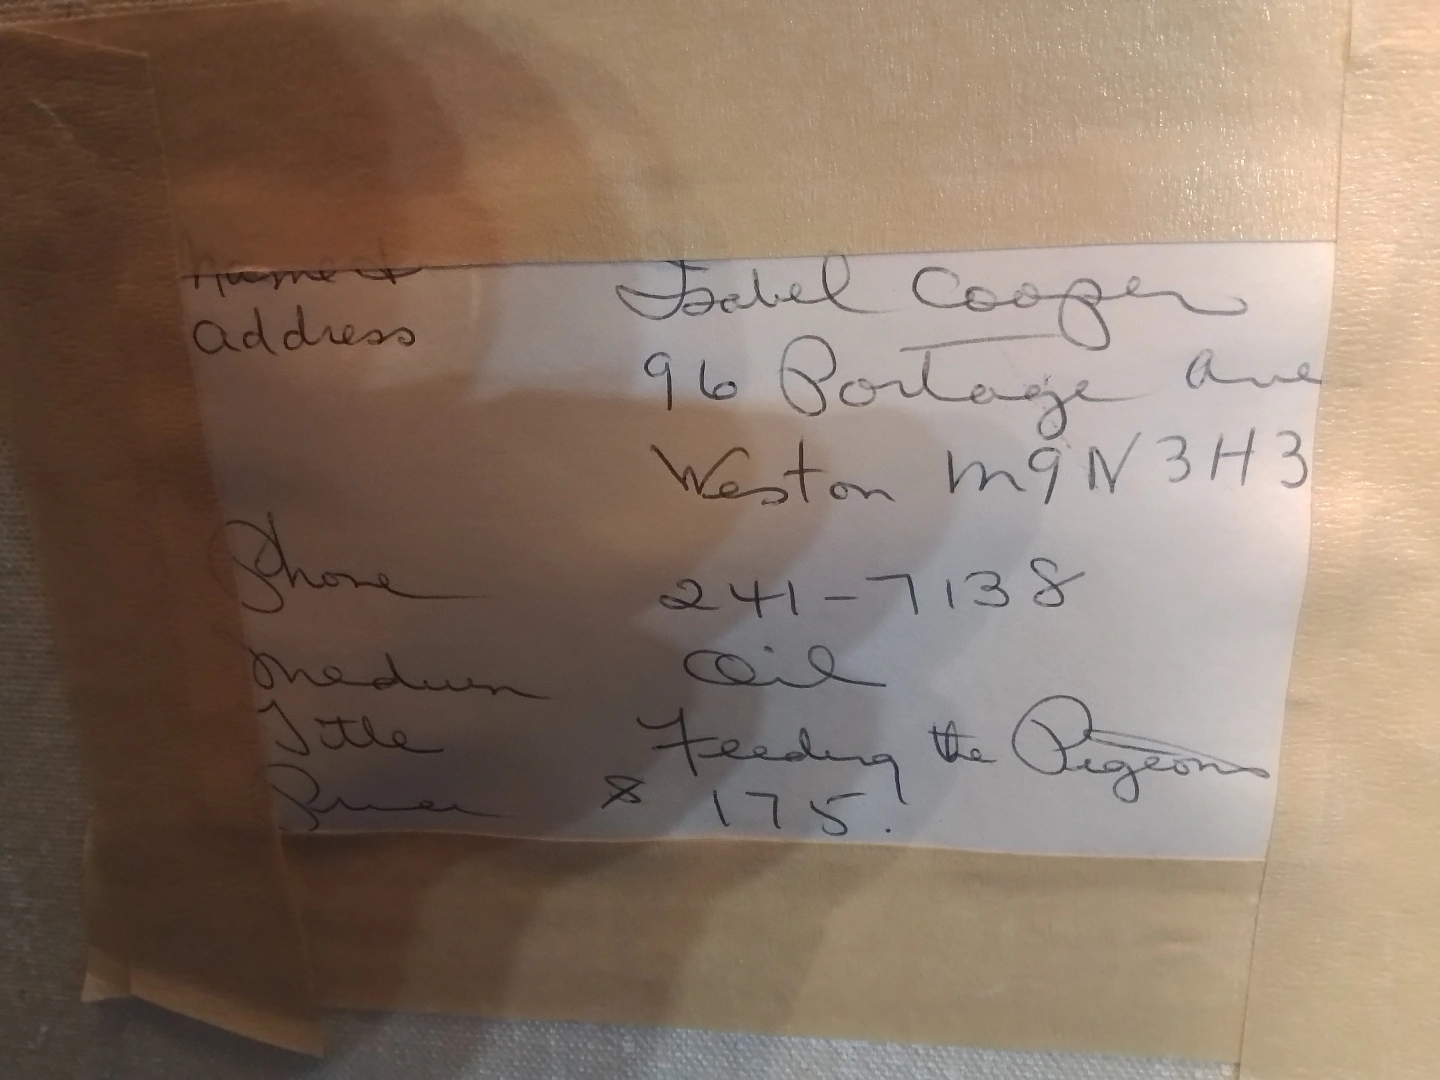 Name & Isabel Cooper
address 96 Portage Ave
Weston M9N 3H3
Phone 241-7138
medium Oil
Title Feeding the Pigeons
Price $ 175.